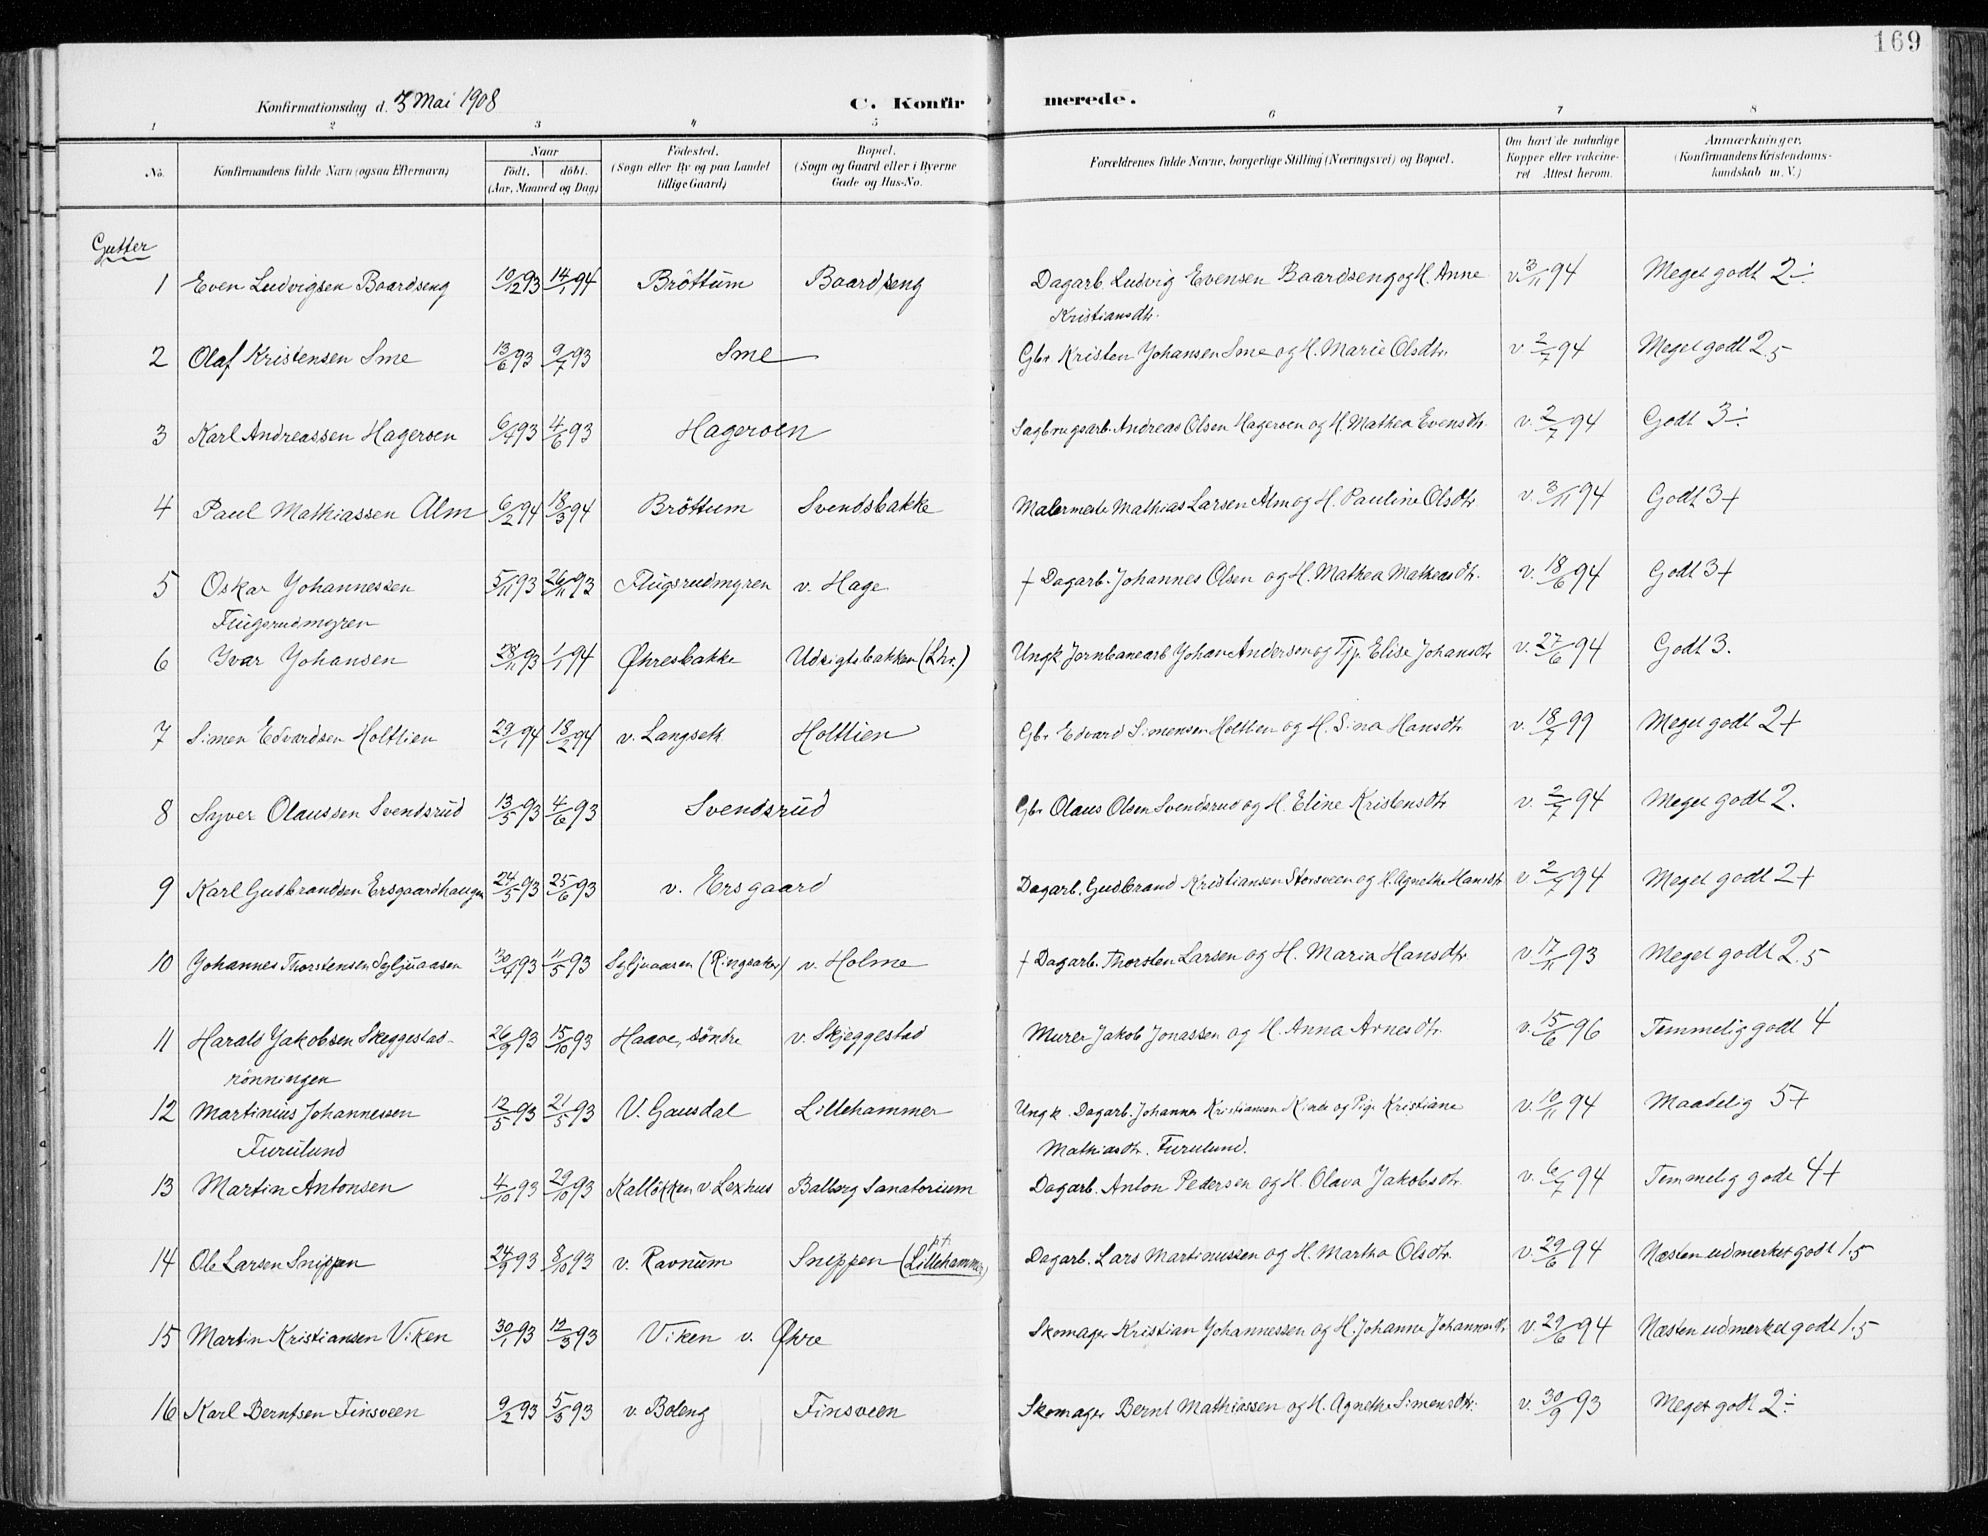 169
Konfirmationsdag d. 3 Mai 1908 C. Konfirmerede.
1 2 3 4 5 6 7 8
No. Konfirmandens fulde Navn (ogsaa Efternavn) Naar Födt. döbt. (Aar, Maaned og Dag) Födested. (Sogn eller By og paa Landet tillige Gaard) Bopæl. (Sogn og Gaard eller i Byerne Gade og Hus-No. Forældrenes fulde Navne, borgerlige Stilling (Næringsvei) og Bopæl. Om havt de naturlige Kopper eller vakcineret Attest herom. Anmærkninger. (Konfirmandens Kristendomskundskab m. V.)
Gutter
1 Even Ludvigsen Baardseng 10/12 93 14/1 94 Bröttum Baardseng Dagarb. Ludvig Evensen Baardseng og H. Anne v. 3/11 94 Meget godt 2÷
Kristiansdtr.
2 Olaf Kristensen Sme 13/6 93 9/7 93 Sme Gbr Kristen Johansen Sme og H. Marie Olsdtr. v. 2/7 94 Meget godt 2.5
3 Karl Andreassen Hageroen 6/4 93 4/6 93 Hageroen Sagbrugsarb. Andreas Olsen Hageroen og H. Mathea Evensdtr. v. 2/7 94 Godt 3÷
4 Paul Mathiassen Alm 6/2 94 18/3 94 Bröttum Svendsbakke Malermester Mathias Larsen Alm og H. Pauline Olsdtr. v. 3/11 94 Godt 3+
5 Oskar Johannessen 5/11 93 26/11 93 Flugsrudmyren v. Hage † Dagarb. Johannes Olsen og H. Mathea Matheasdtr. v. 18/6 94 Godt 3+
Flugsrudmyren
6 Ivar Johansen 28/11 93 1/1 94 Øhresbakke Udsigtsbakken (Lhr.) Ungk Jernbanearb Johan Anderson og Tjp. Elise Johansdtr v. 27/6 94 Godt 3.
7 Simen Edvardsen Holtlien 29/1 94 18/2 94 v. Langseth Holtlien Gbr Edvard Simensen Holtlien og H. Sina Hansdtr v. 18/7 99 Meget godt 2+
8 Syver Olaussen Svendsrud 13/5 93 4/6 93 Svendsrud Gbr Olaus Olsen Svendsrud og H. Eline Kristensdtr v. 2/7 94 Meget godt 2.
9 Karl Gudbrandsen Ersgaardhaugen 24/5 93 25/6 93 v. Ersgaard Dagarb. Gudbrand Kristiansen Storsveen og H. Agnethe Hansdtr v. 2/7 94 Meget godt 2+
10 Johannes Thorstensen Syljuaasen 30/4 93 11/5 93 Syljuaasen (Ringsaker) v. Holme † Dagarb. Thorsten Larsen og H. Maria Hansdtr. v. 17/11 93 Meget godt 2.5
11 Harald Jakobsen Skeggestad- 26/9 93 15/10 93 Haave, söndre v. Skjeggestad Murer Jakob Jonassen og H. Anna Arnesdtr. v. 15/6 96 Temmelig godt 4
rönningen
12 Martinius Johannessen 12/5 93 21/5 93 V. Gausdal Lillehammer Ungk. Dagarb. Johannes Kristiansen Kinde og Pige Kristiane v. 10/11 94 Maadelig 5+
Furulund Mathiasdtr. Furulund.
13 Martin Antonsen 4/10 93 29/10 93 Kalløkken v Lexhus Balberg Sanatorium Dagarb. Anton Pedersen og H. Olava Jakobsdtr. v. 6/7 94 Temmelig godt 4+
14 Ole Larsen Snippen 24/9 93 8/10 93 v. Ravnum Snippen (pt. Lillehammer) Dagarb. Lars Martinussen og H. Martha Olsdtr. v. 29/6 94 Næsten udmerket godt 1.5
15 Martin Kristiansen Viken 30/1 93 12/3 93 Viken v. Øhre Skomager Kristian Johannessen og H. Johanne Johannesdtr v. 29/6 94 Næsten udmerket godt 1.5
16 Karl Berntsen Finsveen 9/2 93 5/3 93 v. Boleng Finsveen Skomager Bernt Mathiassen og H. Agnethe Simensdtr. v. 30/9 93 Meget godt 2÷